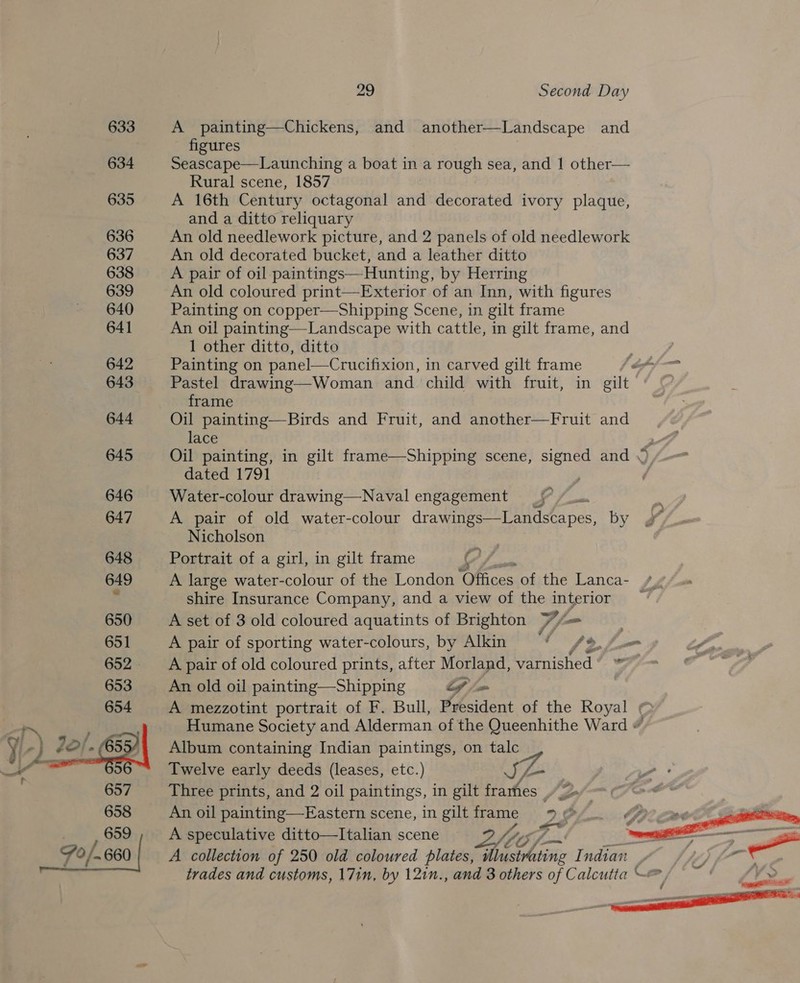 29 Second Day
633 A painting—Chickens, and another—Landscape and
figures
634 Seascape—Launching a boat in a rough sea, and 1 other—
Rural scene, 1857
635 A 16th Century octagonal and decorated ivory plaque,
and a ditto reliquary
636 An old needlework picture, and 2 panels of old needlework
637 An old decorated bucket, and a leather ditto
638 A pair of oil paintings—Hunting, by Herring
639 An old coloured print—Exterior of an Inn, with figures
640 Painting on copper—Shipping Scene, in gilt frame
641 An oil painting—Landscape with cattle, in gilt frame, and
1 other ditto, ditto
642 Painting on panel—Crucifixion, in carved gilt frame
643 Pastel drawing—Woman and child with fruit, in gilt
frame
644 Oil painting—Birds and Fruit, and another—Fruit and
lace
645 Oil painting, in gilt frame—Shipping scene, signed and
dated 1791
646 Water-colour drawing—Naval engagement
647 A pair of old water-colour drawings—Landscapes, by
Nicholson
648 Portrait of a girl, in gilt frame
649 A large water-colour of the London Offices of the Lanca-
shire Insurance Company, and a view of the interior
650 A set of 3 old coloured aquatints of Brighton
651 A pair of sporting water-colours, by Alkin
652 A pair of old coloured prints, after Morland, varnished
653 An old oil painting—Shipping
654 A mezzotint portrait of F. Bull, President of the Royal
Humane Society and Alderman of the Queenhithe Ward
655 Album containing Indian paintings, on talc
656 Twelve early deeds (leases, etc.)
657 Three prints, and 2 oil paintings, in gilt frames
658 An oil painting—Eastern scene, in gilt frame
659 A speculative ditto—Italian scene
660 A collection of 250 old coloured plates, illustrating Indian
trades and customs, 17in. by 12in., and 3 others of Calcutta